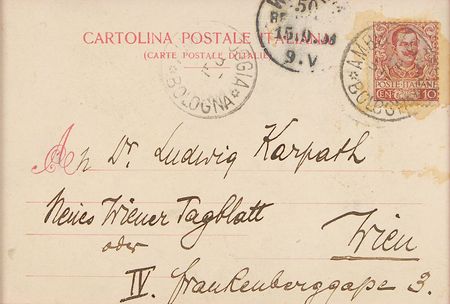 CARTOLINA POSTALE ITALIANA
(CARTE POSTALE D'ITALIE)
50
15.9.
9.V
BOLOGNA
BOLOGNA
POSTE ITALIANE
CENT 10
An Dr. Ludwig Karpath
Neues Wiener Tagblatt
oder
Wien
IV. Frankenberggasse 3.